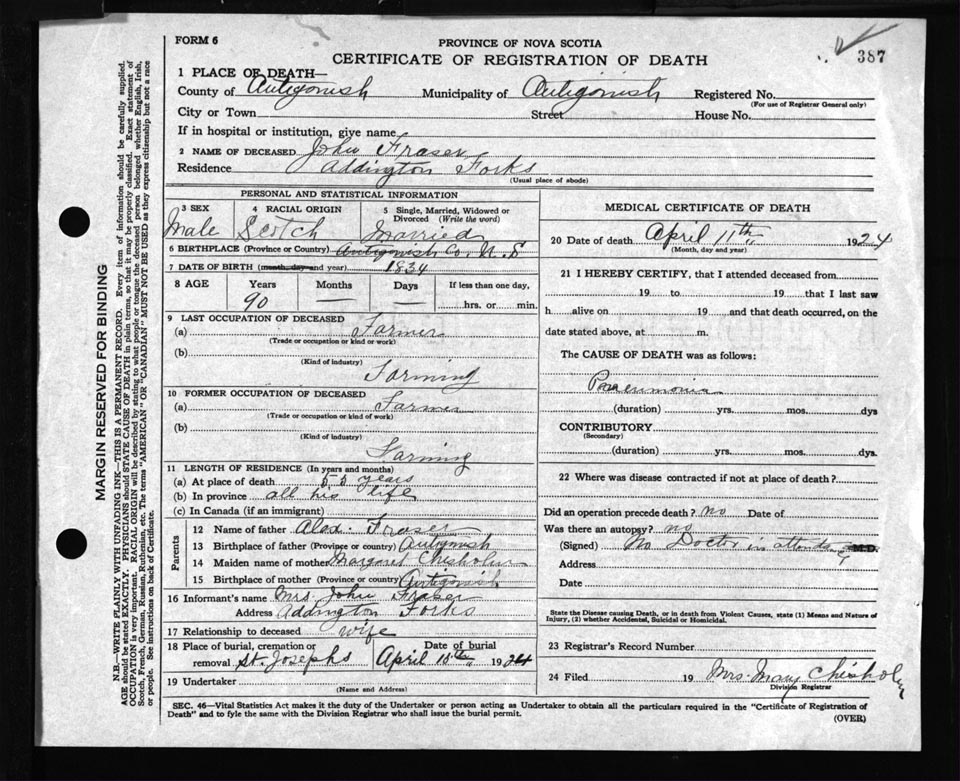 FORM 6
PROVINCE OF NOVA SCOTIA
CERTIFICATE OF REGISTRATION OF DEATH
387
1 PLACE OF DEATH—
County of Antigonish Municipality of Antigonish Registered No.
(For use of Registrar General only)
City or Town Street House No.
If in hospital or institution, give name
2 NAME OF DECEASED John Fraser
Residence Addington Forks
(Usual place of abode)
PERSONAL AND STATISTICAL INFORMATION
3 SEX 4 RACIAL ORIGIN 5 Single, Married, Widowed or
Divorced (Write the word)
Male Scotch Married
6 BIRTHPLACE (Province or Country) Antigonish Co. N. S
7 DATE OF BIRTH (month, day and year) 1834
8 AGE Years Months Days If less than one day,
90 — — hrs. or min.
9 LAST OCCUPATION OF DECEASED
(a) Farmer
(Trade or occupation or kind or work)
(b)
(Kind of industry)
Farming
10 FORMER OCCUPATION OF DECEASED
(a) Farmer
(Trade or occupation or kind of work)
(b)
(Kind of industry)
Farming
11 LENGTH OF RESIDENCE (In years and months)
(a) At place of death 55 years
(b) In province all his life
(c) In Canada (if an immigrant)
Parents
12 Name of father Alex. Fraser
13 Birthplace of father (Province or country) Antigonish
14 Maiden name of mother Margaret Chisholm
15 Birthplace of mother (Province or country) Antigonish
16 Informant's name Mrs. John Fraser
Address Addington Forks
17 Relationship to deceased wife
18 Place of burial, cremation or Date of burial
removal St. Josephs April 1924
19 Undertaker
(Name and Address)
MEDICAL CERTIFICATE OF DEATH
20 Date of death April 11th 1924
(Month, day and year)
21 I HEREBY CERTIFY, that I attended deceased from
19 to 19 that I last saw
h alive on 19 and that death occurred, on the
date stated above, at m.
The CAUSE OF DEATH was as follows:
Pneumonia
(duration) yrs. mos. dys
CONTRIBUTORY
(Secondary)
(duration) yrs. mos. dys.
22 Where was disease contracted if not at place of death?
Did an operation precede death? no Date of
Was there an autopsy? no
(Signed) No Doctor in attendance M.D.
Address
Date
State the Disease causing Death, or in death from Violent Causes, state (1) Means and Nature of
Injury, (2) whether Accidental, Suicidal or Homicidal.
23 Registrar's Record Number
24 Filed 19 Mrs. Mary Chisholm
Division Registrar
SEC. 46—Vital Statistics Act makes it the duty of the Undertaker or person acting as Undertaker to obtain all the particulars required in the "Certificate of Registration of
Death" and to fyle the same with the Division Registrar who shall issue the burial permit.
(OVER)
MARGIN RESERVED FOR BINDING
N.B.—WRITE PLAINLY WITH UNFADING INK—THIS IS A PERMANENT RECORD. Every item of information should be carefully supplied.
AGE should be stated EXACTLY. PHYSICIANS should STATE CAUSE OF DEATH in plain terms, so that it may be properly classified. Exact statement of
OCCUPATION is very important. RACIAL ORIGIN will be described by stating to what people or tongue the deceased person belonged whether English, Irish,
Scotch, French, German, Russian, Ruthenian, etc. The terms "AMERICAN" OR "CANADIAN" MUST NOT BE USED as they express citizenship but not a race
or people. See instructions on back of Certificate.